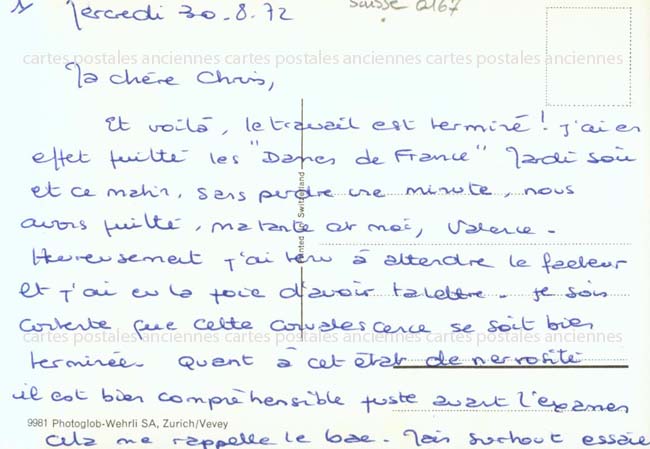 Mercredi 30.8.72
Suisse 0167
cartes postales anciennes cartes postales anciennes cartes postales anciennes
Ma chère Chris,
Et voilà, le travail est terminé! J'ai en
effet quitté les "Dames de France" Mardi soir
et ce matin, sans perdre une minute, nous
avons quitté, ma tante et moi, Valence.
Heureusement j'ai tenu à attendre le facteur
et j'ai eu la joie d'avoir ta lettre. Je suis
contente que cette convalescence se soit bien
cartes postales anciennes cartes postales anciennes cartes postales anciennes
terminée. Quant à cet état de nervosité
il est bien compréhensible juste avant l'examen
9981 Photoglob-Wehrli SA, Zurich/Vevey
Cela me rappelle le bac. Mais surtout essaie
Printed in Switzerland